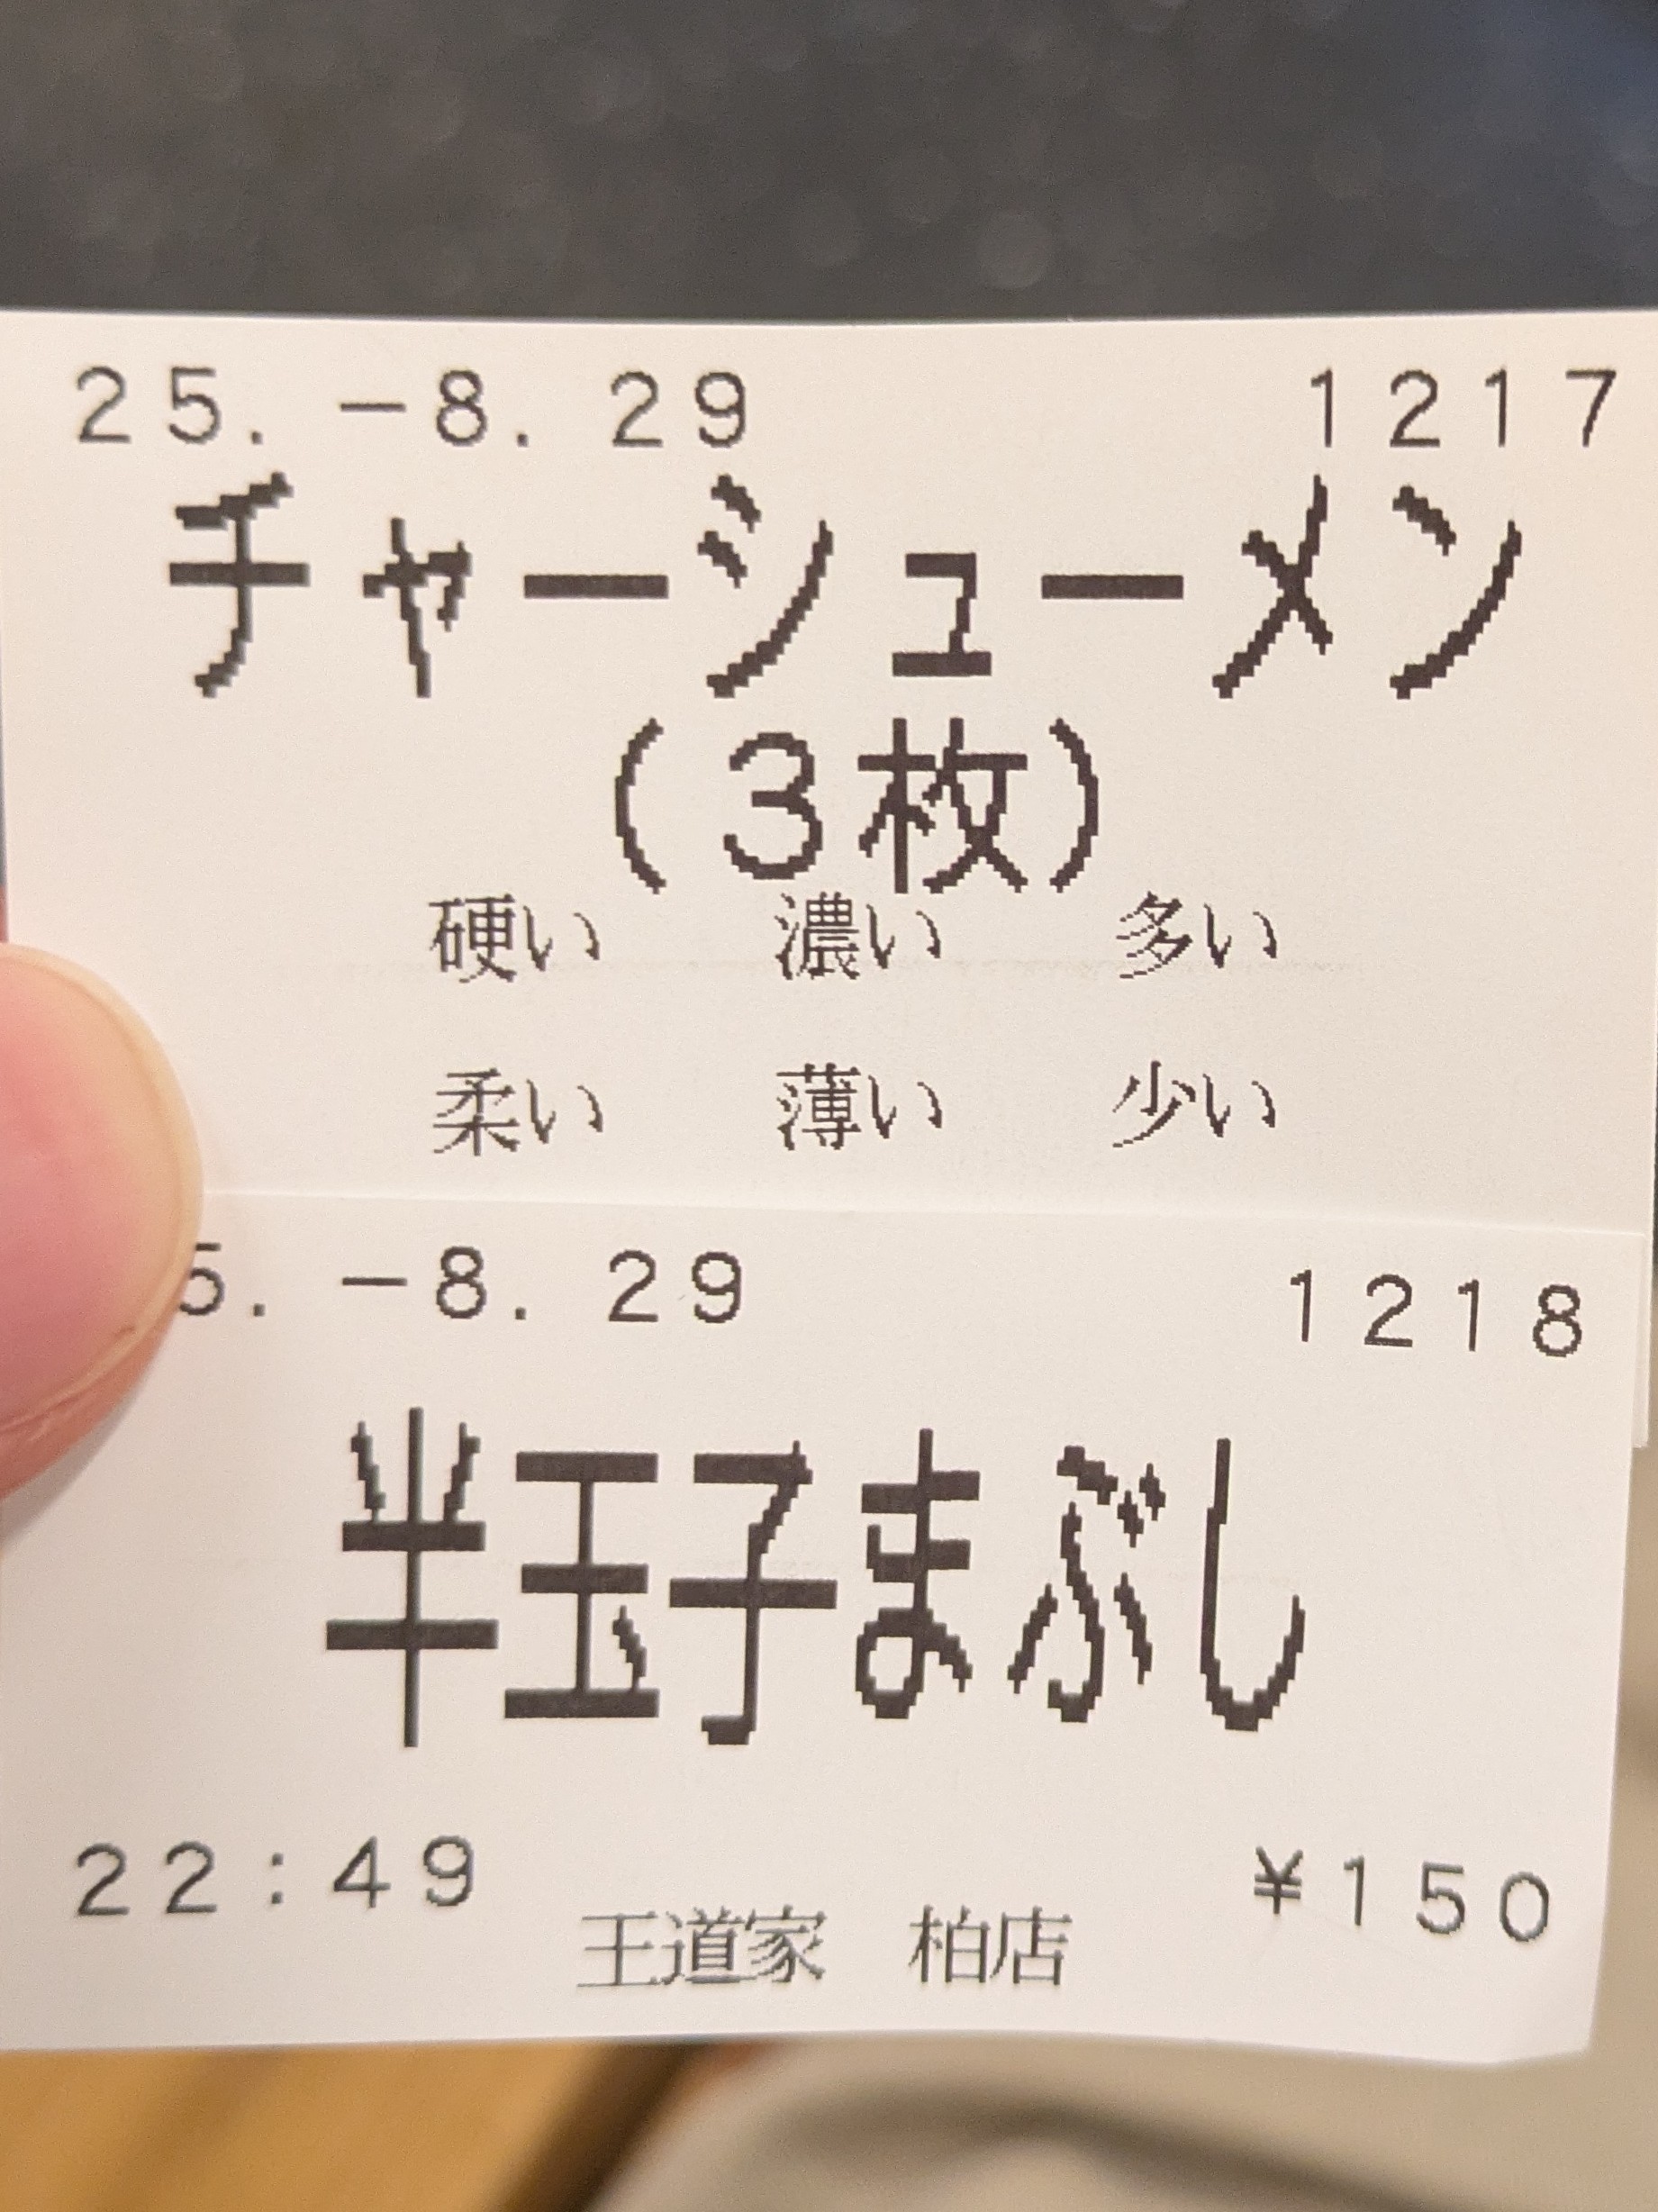 25.-8.29 1217
チャーシューメン
(3枚)
硬い 濃い 多い
柔い 薄い 少い
5.-8.29 1218
半玉子まぶし
22:49 ¥150
王道家 柏店